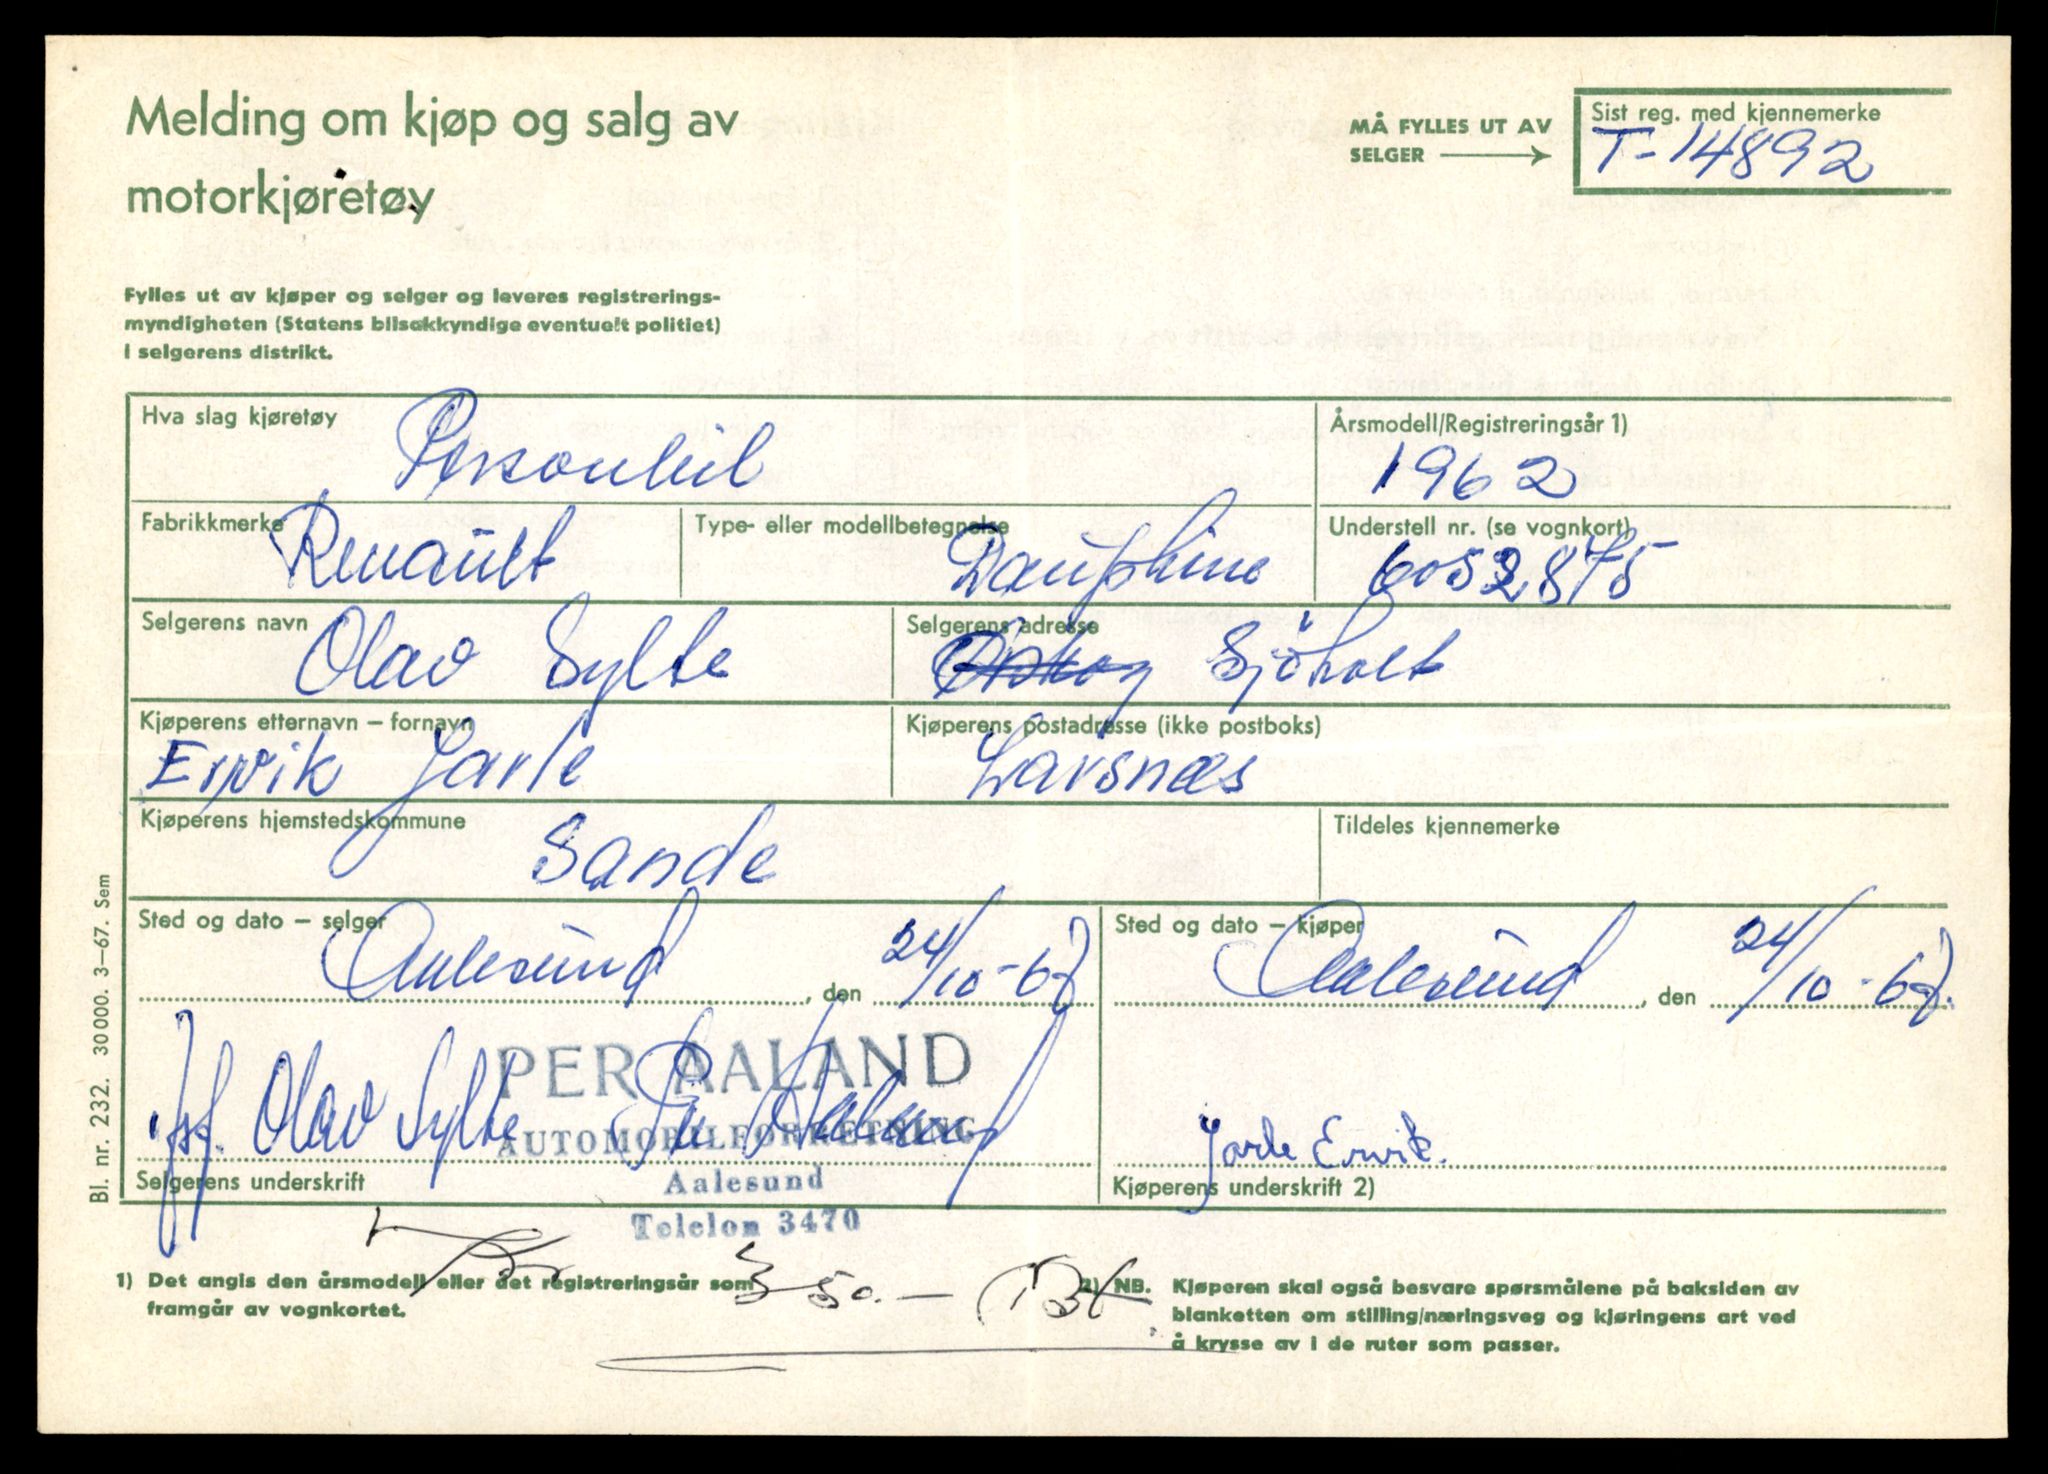 Melding om kjøp og salg av
motorkjøretøy
MÅ FYLLES UT AV
SELGER
Sist reg. med kjennemerke
T-14892
Fylles ut av kjøper og selger og leveres registrerings-
myndigheten (Statens bilsakkyndige eventuelt politiet)
i selgerens distrikt.
Hva slag kjøretøy
Personbil
Årsmodell/Registreringsår 1)
1962
Fabrikkmerke
Renault
Type- eller modellbetegnelse
Dauphine
Understell nr. (se vognkort)
6052875
Selgerens navn
Olav Sylte
Selgerens adresse
Sjöholt
Kjøperens etternavn – fornavn
Ervik Jarle
Kjøperens postadresse (ikke postboks)
Larsnæs
Kjøperens hjemstedskommune
Sande
Tildeles kjennemerke
Sted og dato – selger
Aalesund, den 24/10-67
Sted og dato – kjøper
Aalesund, den 24/10-67.
PER AALAND
AUTOMOBILFORRETNING
Aalesund
Telefon 3470
Olav Sylte Per Aaland
Selgerens underskrift
Jarle Ervik.
Kjøperens underskrift 2)
Bl. nr. 232. 30 000. 3–67. Sem
350.-
1) Det angis den årsmodell eller det registreringsår som
framgår av vognkortet.
2) NB. Kjøperen skal også besvare spørsmålene på baksiden av
blanketten om stilling/næringsveg og kjøringens art ved
å krysse av i de ruter som passer.